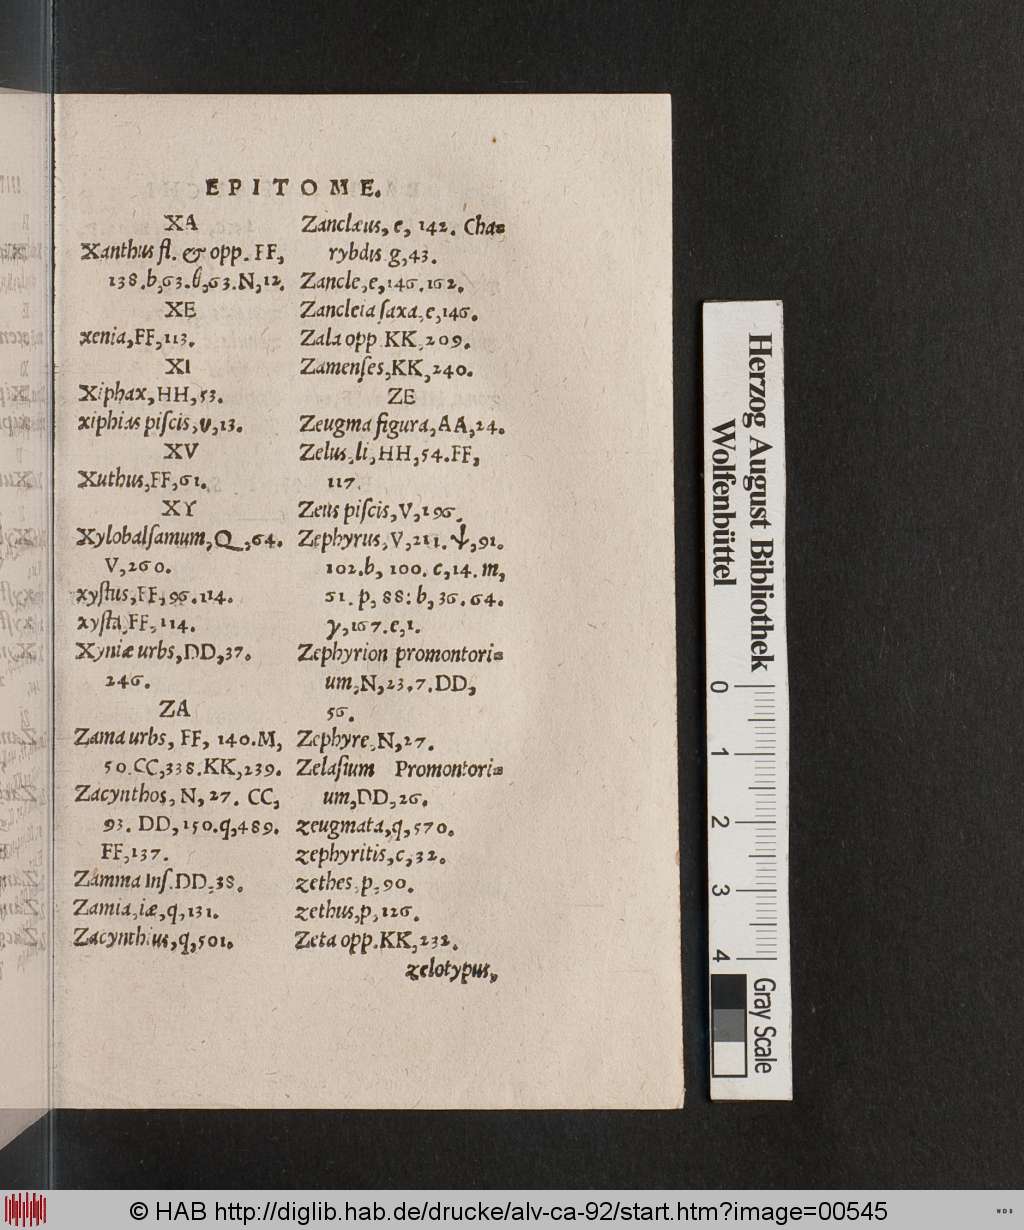 EPITOME.
XA
Xanthus fl. & opp. FF,
138.b,63.θ,63.N,12.
XE
xenia,FF,113.
XI
Xiphax,HH,53.
xiphias piſcis,υ,13.
XV
Xuthus,FF,61.
XY
Xylobalſamum,Q,64.
V,260.
xyſtus,FF,96.114.
xyſta,FF,114.
Xyniæ urbs,DD,37.
246.
ZA
Zama urbs, FF, 140.M,
50.CC,338.KK,239.
Zacynthos, N, 27. CC,
93. DD,150.q,489.
FF,137.
Zamma Inſ.DD,38.
Zamia,iæ,q,131.
Zacynthius,q,501.
Zanclæus, e, 142. Cha=
rybdis g,43.
Zancle,e,146.162.
Zancleia ſaxa,e,146.
Zala opp. KK,209.
Zamenſes,KK,240.
ZE
Zeugma figura,AA,24.
Zelus,li,HH,54.FF,
117.
Zeus piſcis,V,196.
Zephyrus,V,211.ψ,91.
102.b, 100. c,14. m,
51. p, 88: b, 36. 64.
γ,167.e,1.
Zephyrion promontori=
um,N,23.7.DD,
56.
Zephyre,N,27.
Zelaſium Promontori=
um,DD,26.
zeugmata,q,570.
zephyritis,c,32.
zethes,p,90.
zethus,p,126.
Zeta opp.KK,232.
zelotypus,
Herzog August Bibliothek
Wolfenbüttel
0 1 2 3 4
Gray Scale
© HAB http://diglib.hab.de/drucke/alv-ca-92/start.htm?image=00545